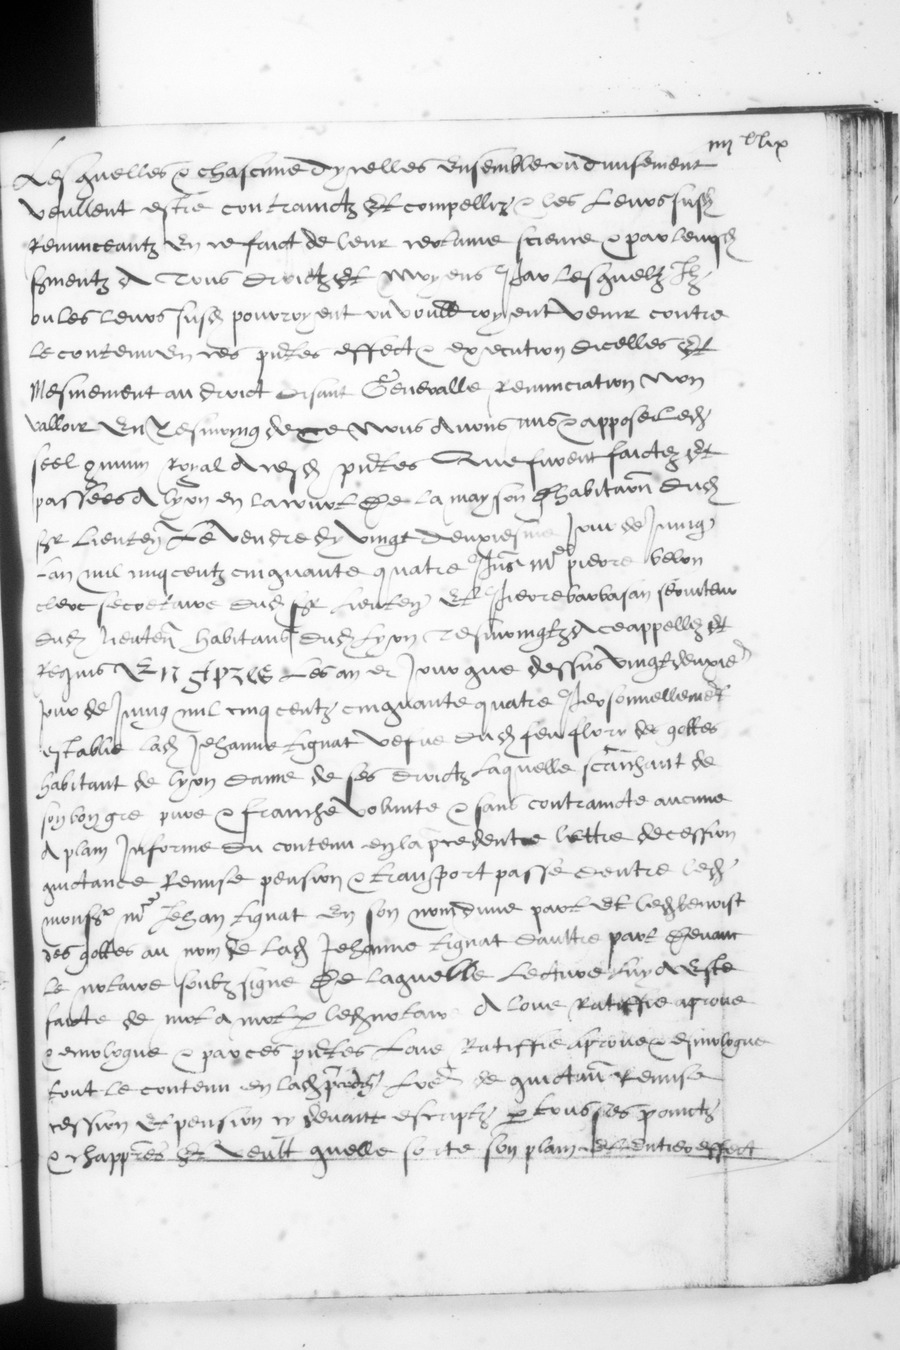 iiii^c lix
Lesquelles & chascune dycelles ensemble ou divisement
veullent estre contrainctz et compellir & les leurs susd
Renunceantz en ce faict de leur certaine science & par leursd
sermentz A tous droictz et moyens Par lesqueltz Ilz
ou les leurs susd pourroyent ou vouldroyent venir contre
le contenu en ces pntes effect & execution dicelles Et
Mesmement au droict disant Generalle Renunciation non
valloir En Tesmoing de ce Nous Avons mis & appose led
seel commun Royal A cesd pntes Que furent faictes et
passees A lyon en la court De la mayson dhabitaon Dud
sr Lieuten Le vendredy vingt deuxiesme Jour de Juing
Lan mil cinq centz cinquante quatre Pns me pierre velon
clerc secretaire dud sr Lieuten Et Pierre barbasan serviteur
dud lieuten habitans dud Lyon Tesmoingtz A ce appellez et
Requis Et Les an et Jour que dessus vingtdeuxie
Jour de Juing mil cinq centz cinquante quatre Personnellement
establie lad Jehanne tignat vefve dud feu flory des gottes
habitant de lyon Dame de ses droictz Laquelle scaichant de
son bon gre pure & franche volunte & sans contraincte aucune
A plain Informe du contenu en la precedente lettre de cession
quictance Remise pension & transport passe entre led
monsr me Jehan tignat En son nom dune part Et led benoist
des gottes au nom de lad Jehanne tignat daultre part Devant
le notaire soubzsigne De laquelle Lecture luy A Este
faicte de mot a mot par led notaire A loue Ratiffie aprouve
& emologue & par ces pntes Loue Ratiffie aprouve & emologue
tout le contenu en lad lre de quictan Remise
cession Et pension cy devant escriptz par tous ses poinctz
& chappres Et veult quelle sorte son plain et entier effect